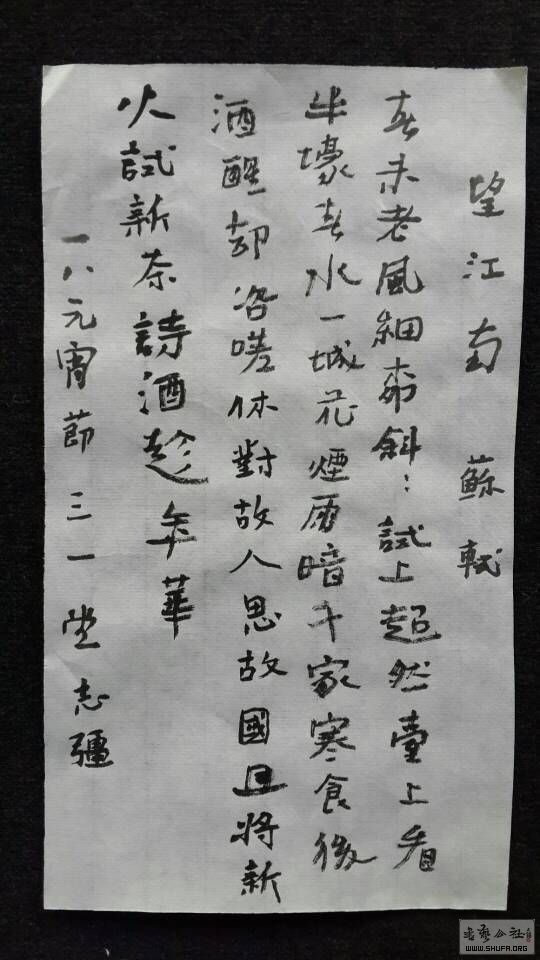 望江南 蘇軾
春未老風細柳斜：試上超然臺上看
半壕春水一城花煙雨暗千家寒食後
酒醒却咨嗟休對故人思故國且將新
火試新茶詩酒趁年華
一八元宵節三一堂志彊
书艺公社
WWW.SHUFA.ORG